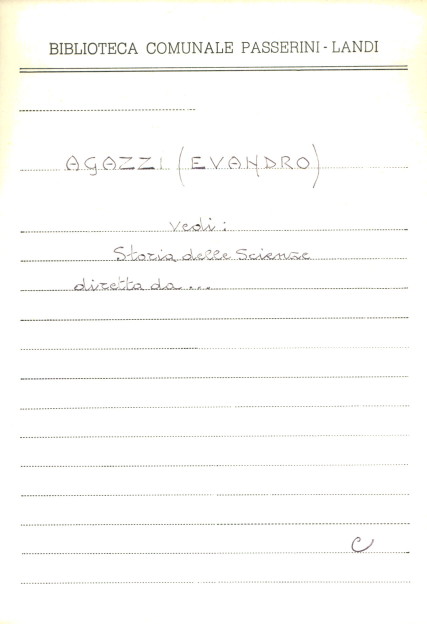 BIBLIOTECA COMUNALE PASSERINI - LANDI
AGAZZI (EVANDRO)
vedi:
Storia delle Scienze
diretta da ...
C